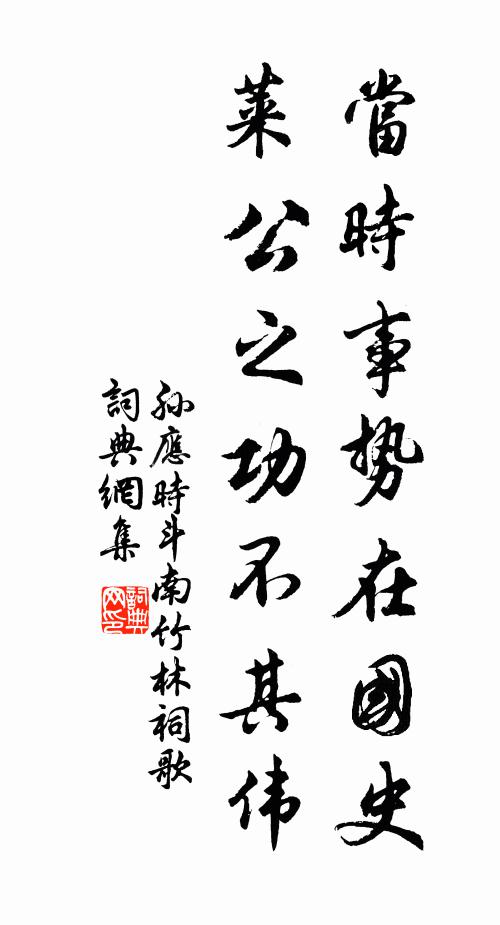 當時事势在國史
萊公之功不其伟
孙應時斗南竹林祠歌
詞典網集
詞典网印